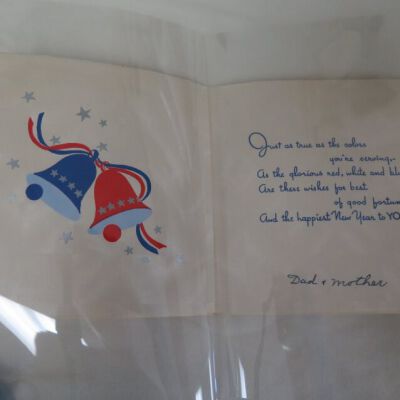 Just as true as the colors
you're serving,
As the glorious red, white and
Are these wishes for best
of good
And the happiest New Year to
Dad + mother